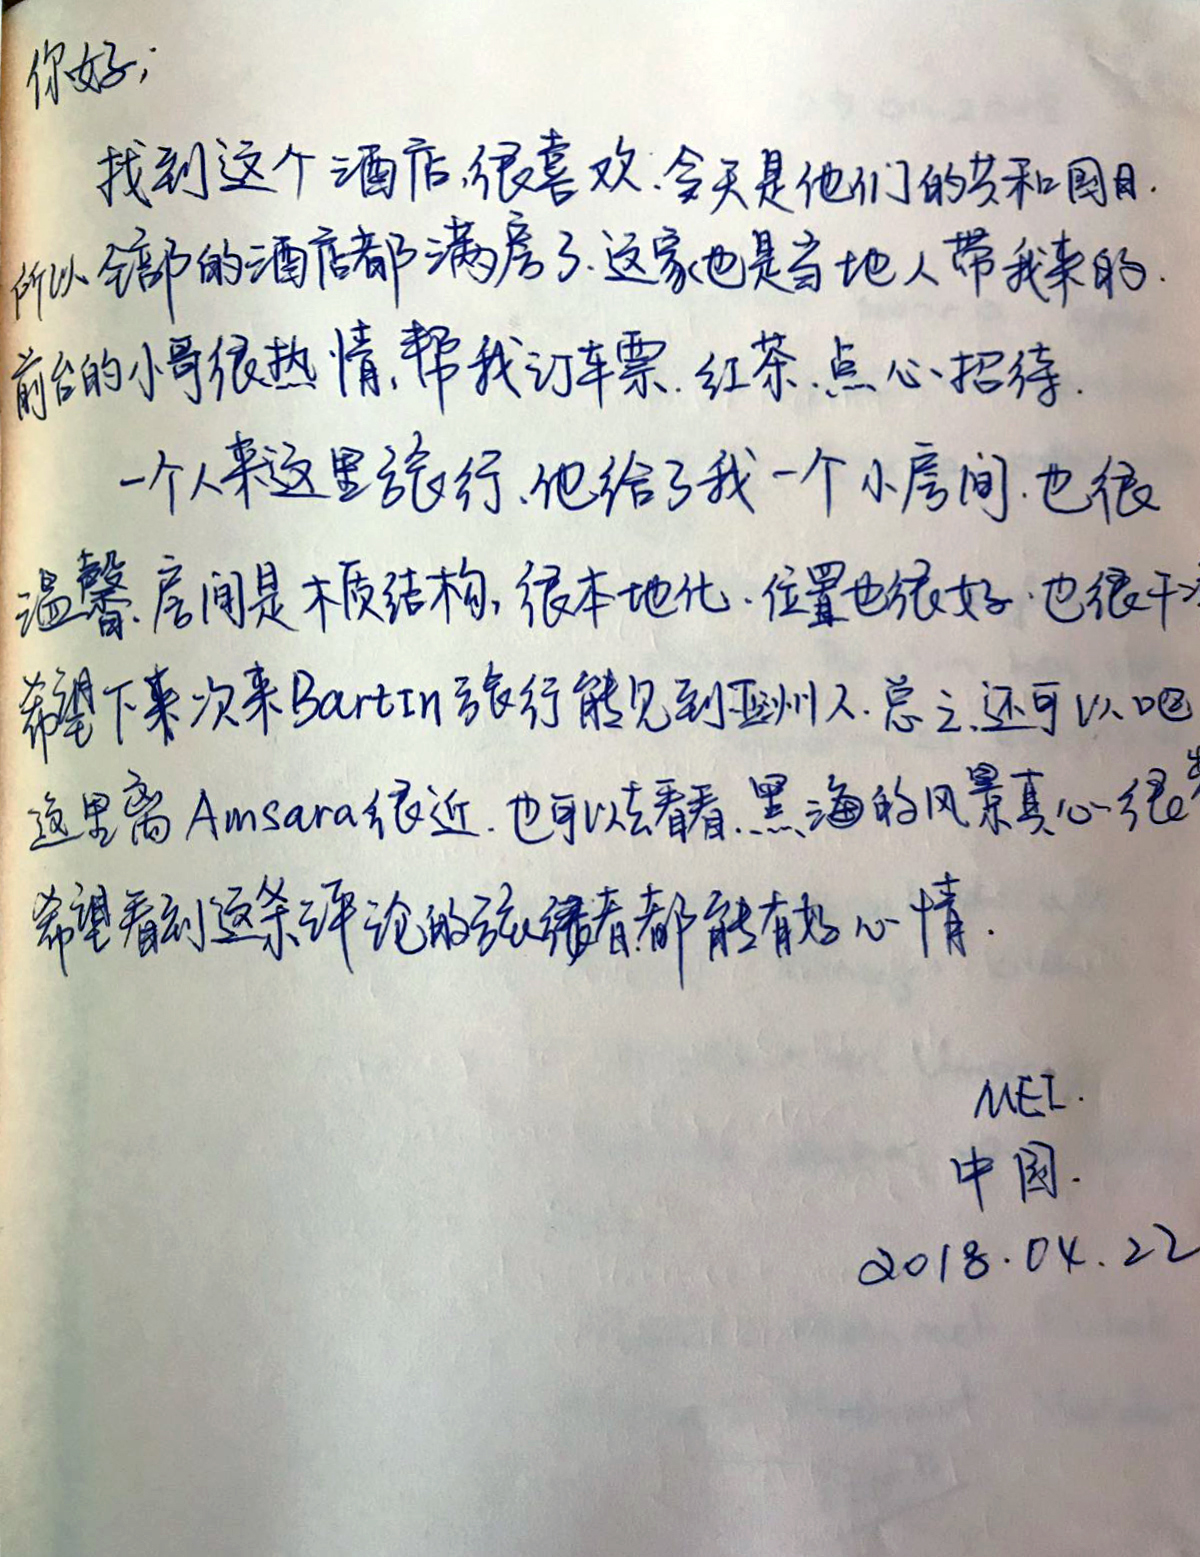 你好;
找到这个酒店,很喜欢.今天是他们的共和国日.
所以全部的酒店都满房了.这家也是当地人带我来的.
前台的小哥很热情,帮我订车票.红茶.点心招待.
一个人来这里旅行.他给了我一个小房间.也很
温馨.房间是木质结构,很本地化.位置也很好.也很干净
希望下来次来Bartın旅行能见到亚洲人.总之.还可以吧
这里离Amsara很近.也可以去看看.黑海的风景真心很
希望看到这条评论的都能有好心情.
MEI.
中国.
2018.04.22